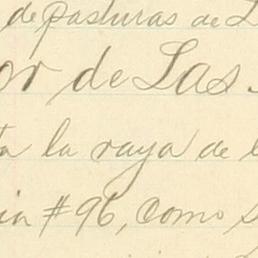 de pasturas de L
or de Las
ta la raya de
ia #96, como s